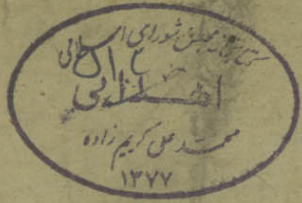 کتابخانه مجلس شورای اسلامی
۵۱۲
اهدائی
محمد علی کریم زاده
۱۳۷۷